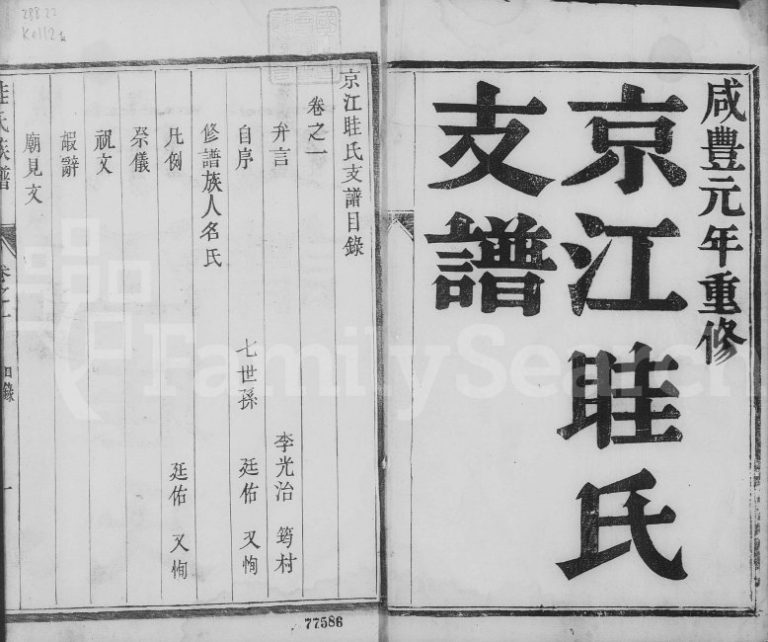 咸豐元年重修
京江眭氏
支譜
京江眭氏支譜目錄
卷之一
弁言 李光治 筠村
自序 七世孫 廷佑 又恂
修譜族人名氏
凡例 廷佑 又恂
祭儀
祝文
嘏辭
廟見文
眭氏族譜 卷之一 目錄 一
77586
FamilySearch
288.22